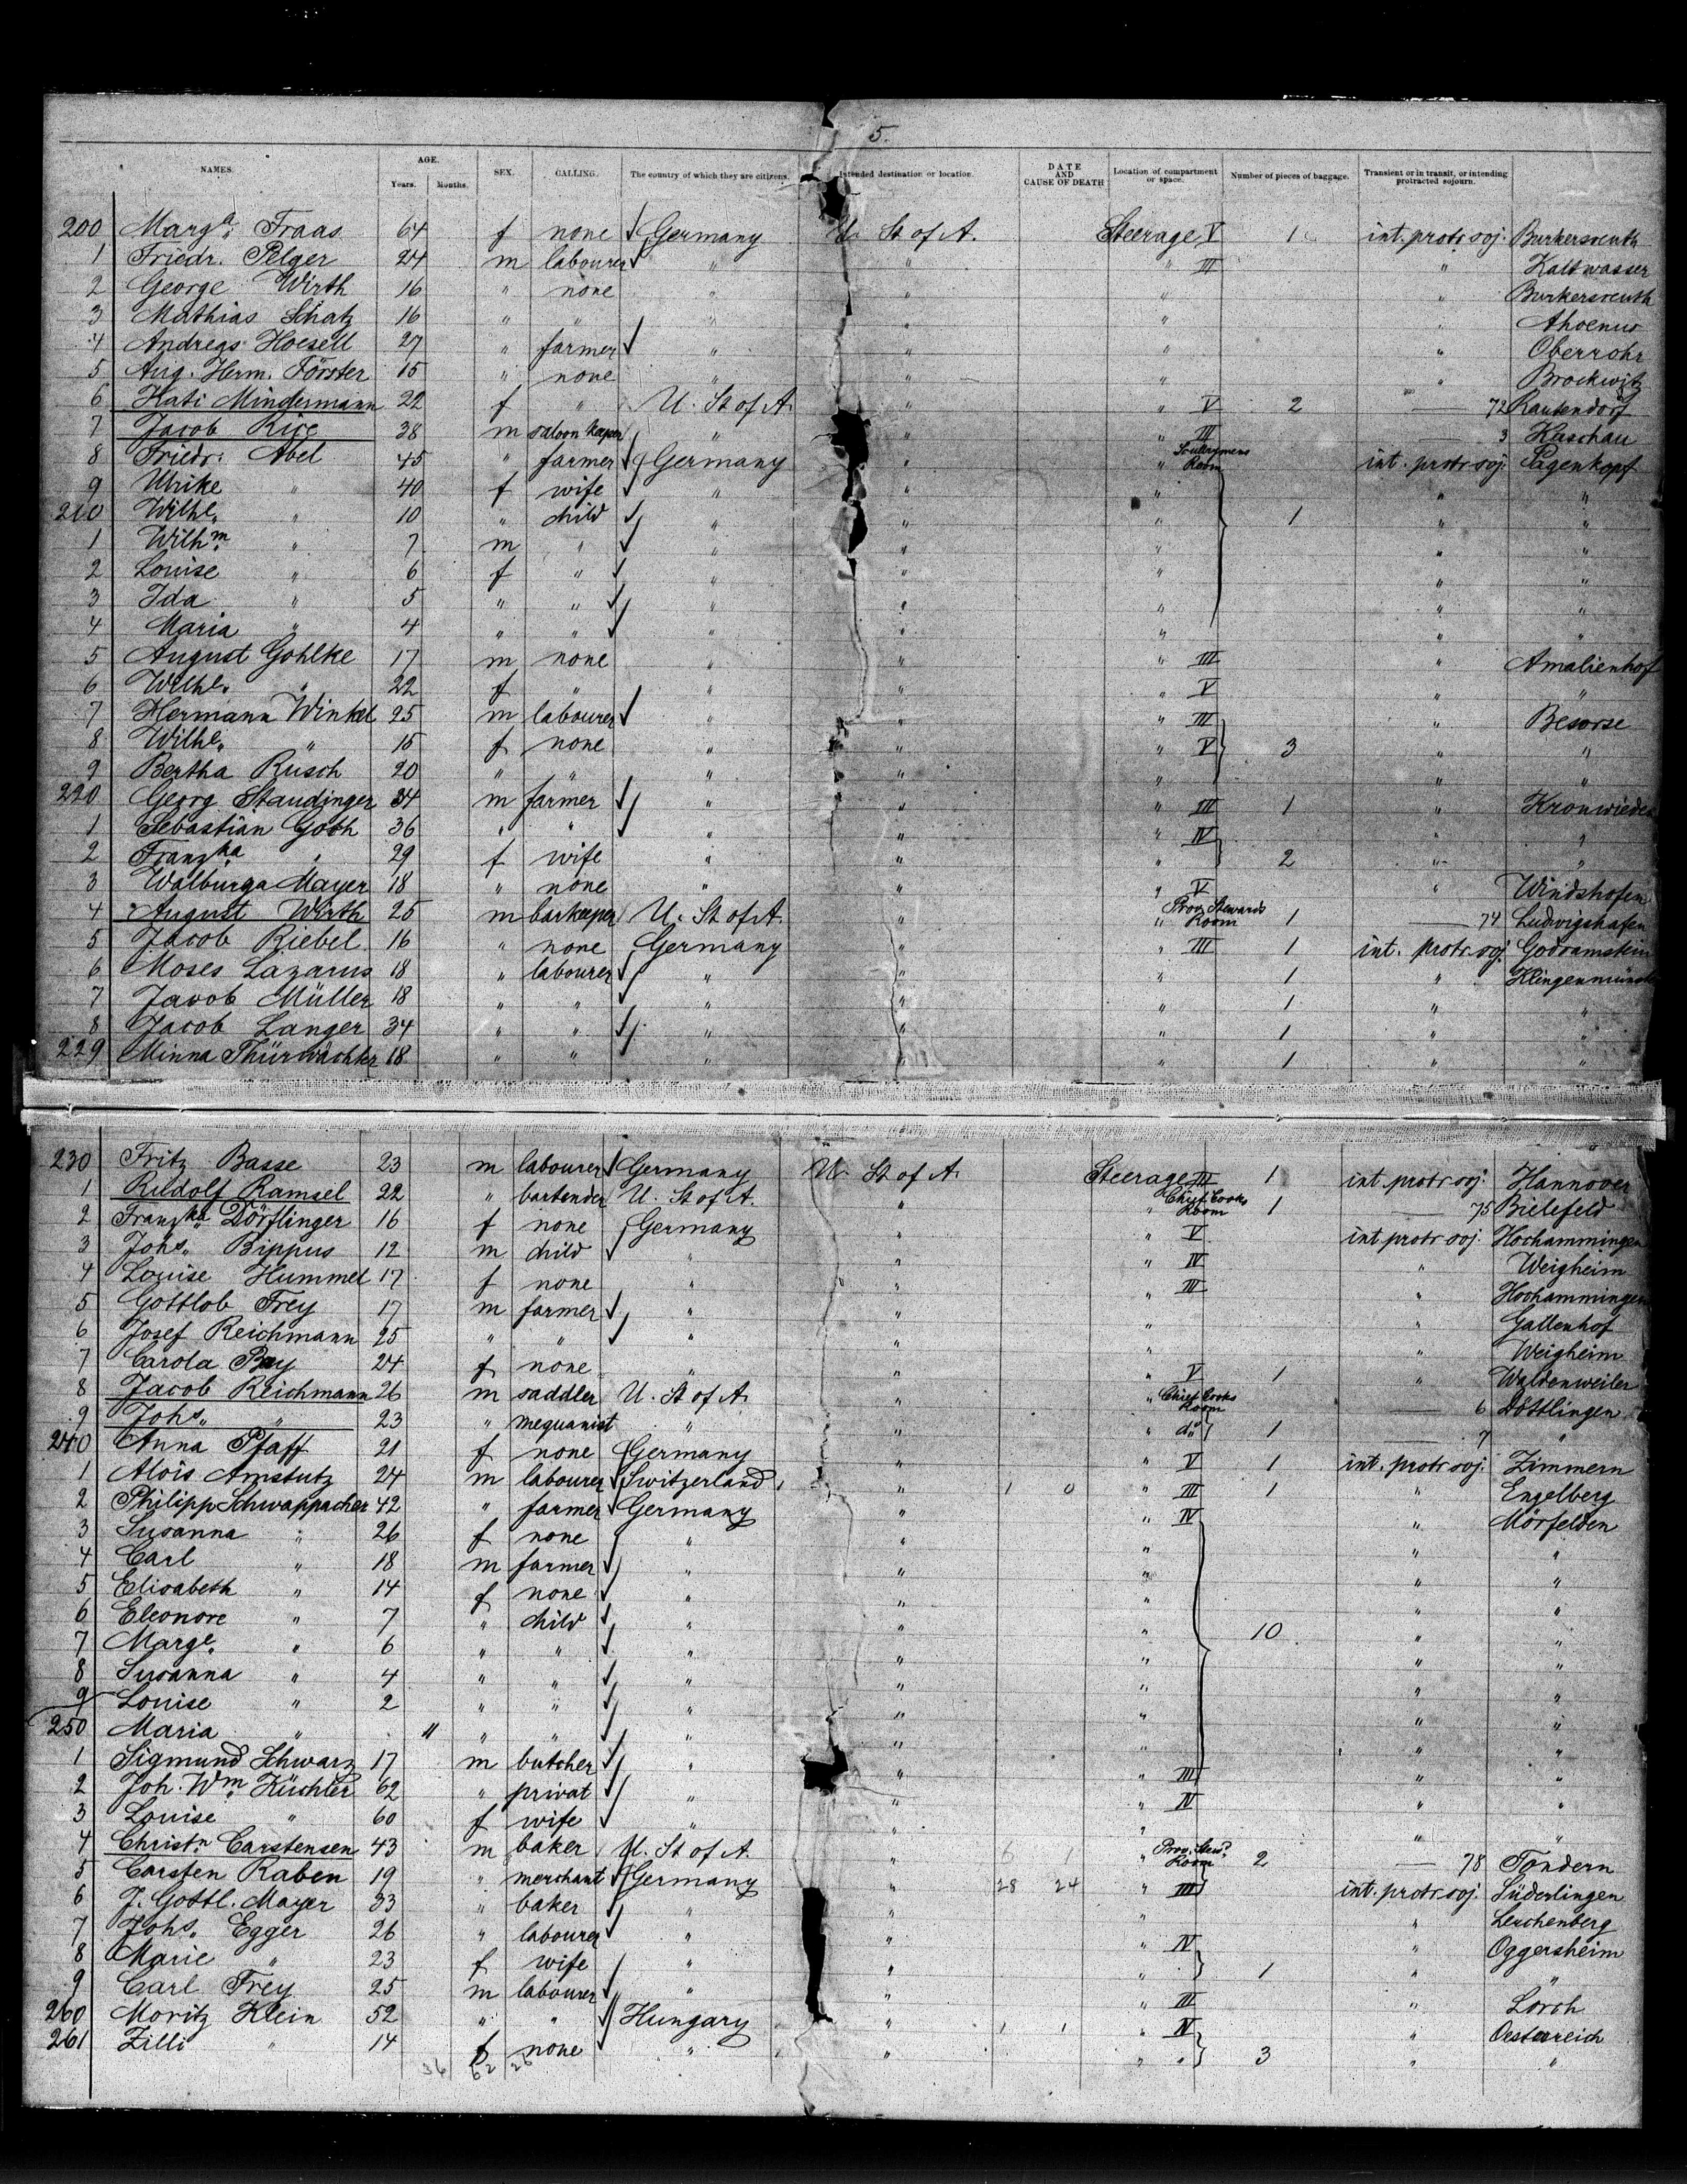 5.
NAMES. AGE. Years. Months. SEX. CALLING. The country of which they are citizens. Intended destination or location. DATE AND CAUSE OF DEATH Location of compartment or space. Number of pieces of baggage. Transient or in transit, or intending protracted sojourn.
200 Marga. Fraas 64 f none Germany U. St of A. Steerage V 1 int. protr. soj. Burkersreuth
1 Friedr. Pelger 24 m labourer " " " III " Kaltwasser
2 George Wirth 16 " none " " " " Burkersreuth
3 Mathias Schatz 16 " " " " " " Ahoenus
4 Andreas Hoesell 27 " farmer " " " " Oberrohr
5 Aug. Herm. Förster 15 " none " " " " Brockwitz
6 Kati Mindermann 22 f " U. St of A. " " V 2 — 72 Rautendorf
7 Jacob Rice 38 m saloon keeper " " " III — 3 Kaschau
8 Friedr. Abel 45 " farmer Germany " " Scullerymens Room int. protr. soj. Pagenkopf
9 Ulrike " 40 f wife " " " " "
210 Wilhe. " 10 " child " " " 1 " "
1 Wilhm. " 7 m " " " " " "
2 Louise " 6 f " " " " " "
3 Ida " 5 " " " " " " "
4 Maria " 4 " " " " " " "
5 August Gohlke 17 m none " " " III " Amalienhof
6 Wilhe. " 22 f " " " " V " "
7 Hermann Winkel 25 m labourer " " " III " Besorse
8 Wilhe. " 15 f none " " " V 3 " "
9 Bertha Rusch 20 " " " " " " "
220 Georg Staudinger 34 m farmer " " " III 1 " Kronwieden
1 Sebastian Goth 36 " " " " " IV " "
2 Franzka. " 29 f wife " " " 2 " "
3 Walburga Mayer 18 " none " " " V " Windshofen
4 August Wirth 25 m barkeeper U. St of A. " " Prov. Stewards Room 1 — 74 Ludwigshafen
5 Jacob Riebel 16 " none Germany " " III 1 int. protr. soj. Godramstein
6 Moses Lazarus 18 " labourer " " " 1 " Klingenmünst
7 Jacob Müller 18 " " " " " 1 " "
8 Jacob Langer 34 " " " " " 1 " "
229 Minna Thürwächter 18 " " " " " 1 " "
230 Fritz Basse 23 m labourer Germany U. St of A. Steerage III 1 int. protr. soj. Hannover
1 Rudolf Ramsel 22 " bartender U. St of A. " " Chief Cooks Room 1 — 75 Bielefeld
2 Franzka. Dörflinger 16 f none Germany " " V int protr soj. Hochammingen
3 Johs. Bippus 12 m child " " " IV " Weigheim
4 Louise Hummel 17 f none " " " III " Hochammingen
5 Gottlob Frey 17 m farmer " " " " Gallenhof
6 Josef Reichmann 25 " " " " " " Weigheim
7 Carola Bay 24 f none " " " V 1 " Waldenweiler
8 Jacob Reichmann 26 m saddler U. St of A. " " Chief Cooks Room — 6 Döttlingen
9 Johs. " 23 " mequanist " " " do 1 — 7 "
240 Anna Pfaff 21 f none Germany " " V 1 int. protr soj. Zimmern
1 Alois Amstutz 24 m labourer Switzerland " 1 0 " III 1 " Engelberg
2 Philipp Schwappacher 42 " farmer Germany " " IV " Mörfelden
3 Susanna " 26 f none " " " " "
4 Carl " 18 m farmer " " " " "
5 Elisabeth " 14 f none " " " " "
6 Eleonore " 7 " child " " " 10 " "
7 Marge. " 6 " " " " " " "
8 Susanna " 4 " " " " " " "
9 Louise " 2 " " " " " " "
250 Maria " 11 " " " " " " "
1 Sigmund Schwarz 17 m butcher " " " III " "
2 Joh. Wm. Küchler 62 " privat " " " IV " "
3 Louise " 60 f wife " " " " "
4 Christn. Carstensen 43 m baker U. St of A. " 6 1 " Prov. Stewd. Room 2 — 78 Tondern
5 Carsten Raben 19 " merchant Germany " 28 24 " III int. protr. soj. Süderlingen
6 J. Gottl. Mayer 33 " baker " " " " Lerchenberg
7 Johs. Egger 26 " labourer " " " IV " Oggersheim
8 Marie " 23 f wife " " " 1 " "
9 Carl Frey 25 m labourer " " " III " Lorch
260 Moritz Klein 52 " " Hungary " 1 1 " IV " Oesterreich
261 Zilli " 14 f none " " " " 3 " "
36 62 28